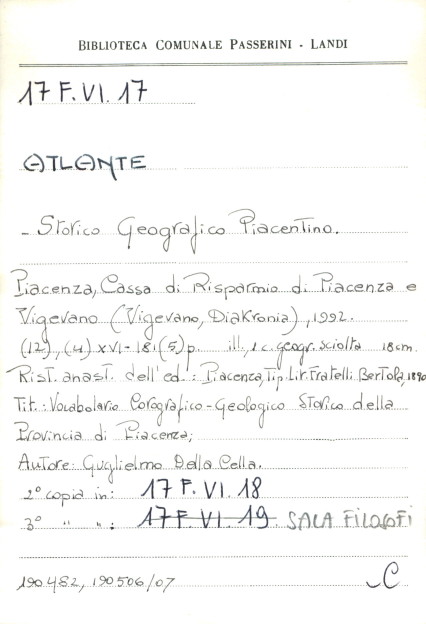 BIBLIOTECA COMUNALE PASSERINI - LANDI
17 F. VI. 17
ATLANTE
- Storico Geografico Piacentino.
Piacenza, Cassa di Risparmio di Piacenza e
Vigevano (Vigevano, Diakronia), 1992.
(12), (4) XVI-181(5)p. ill., 1 c. geogr. sciolta 18cm.
Rist. anast. dell'ed.: Piacenza, Tip. Lir. Fratelli Bertola, 1890
Tit.: Vocabolario Corografico-Geologico Storico della
Provincia di Piacenza;
Autore: Guglielmo Della Cella.
2° copia in: 17 F. VI. 18
3° " " : 17 F. VI. 19. SALA FILOSOFI
190482, 190506/07
C